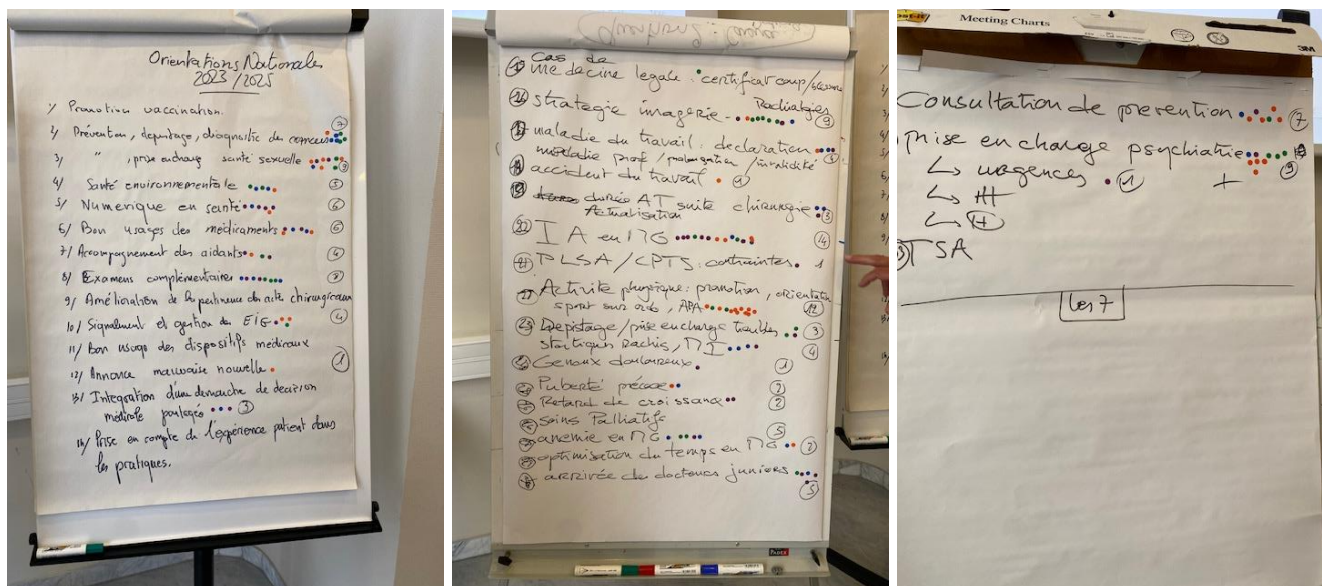 Orientations Nationales
2023/2025
1/ Promotion vaccination.
2/ Prévention, dépistage, diagnostic des cancers
7
3/ " , prise en charge santé sexuelle
9
4/ Santé environnementale
5
5/ Numérique en santé
6
6/ Bon usages des médicaments
6
7/ Accompagnement des aidants
4
8/ Examens complémentaires
9/ Amélioration de la pertinence des actes chirurgicaux
10/ Signalement et gestion des EIG
4
11/ Bon usage des dispositifs médicaux
12/ Annonce mauvaise nouvelle
1
13/ Intégration d'une démarche de décision
médicale partagée
3
14/ Prise en compte de l'expérience patient dans
les pratiques.
cas de
médecine legale : certificat coup/blessure
16 strategie imagerie - Radialgies
9
maladie du travail : declaration
5
maladie prof / prolongation / invalidité
accident du travail
1
durée AT suite chirurgie
3
Actualisation
IA en MG
14
PLSA / CPTS : contraintes. 1
Activité physique : promotion, orientation
sport sur ordo, APA
12
Depistage / prise en charge troubles
3
statiques Rachis, MI
4
Genoux douloureux
1
Puberté précoce
2
Retard de croissance
2
soins Palliatifs
anemie en MG
5
optimisation du temps en MG
2
arrivée des docteurs juniors
5
PAPER
Post-it
Meeting Charts
3M
Consultation de prevention
7
prise en charge psychiatrie
9
↳ urgences
1
+
↳ HT
↳ H
TSA
les 7